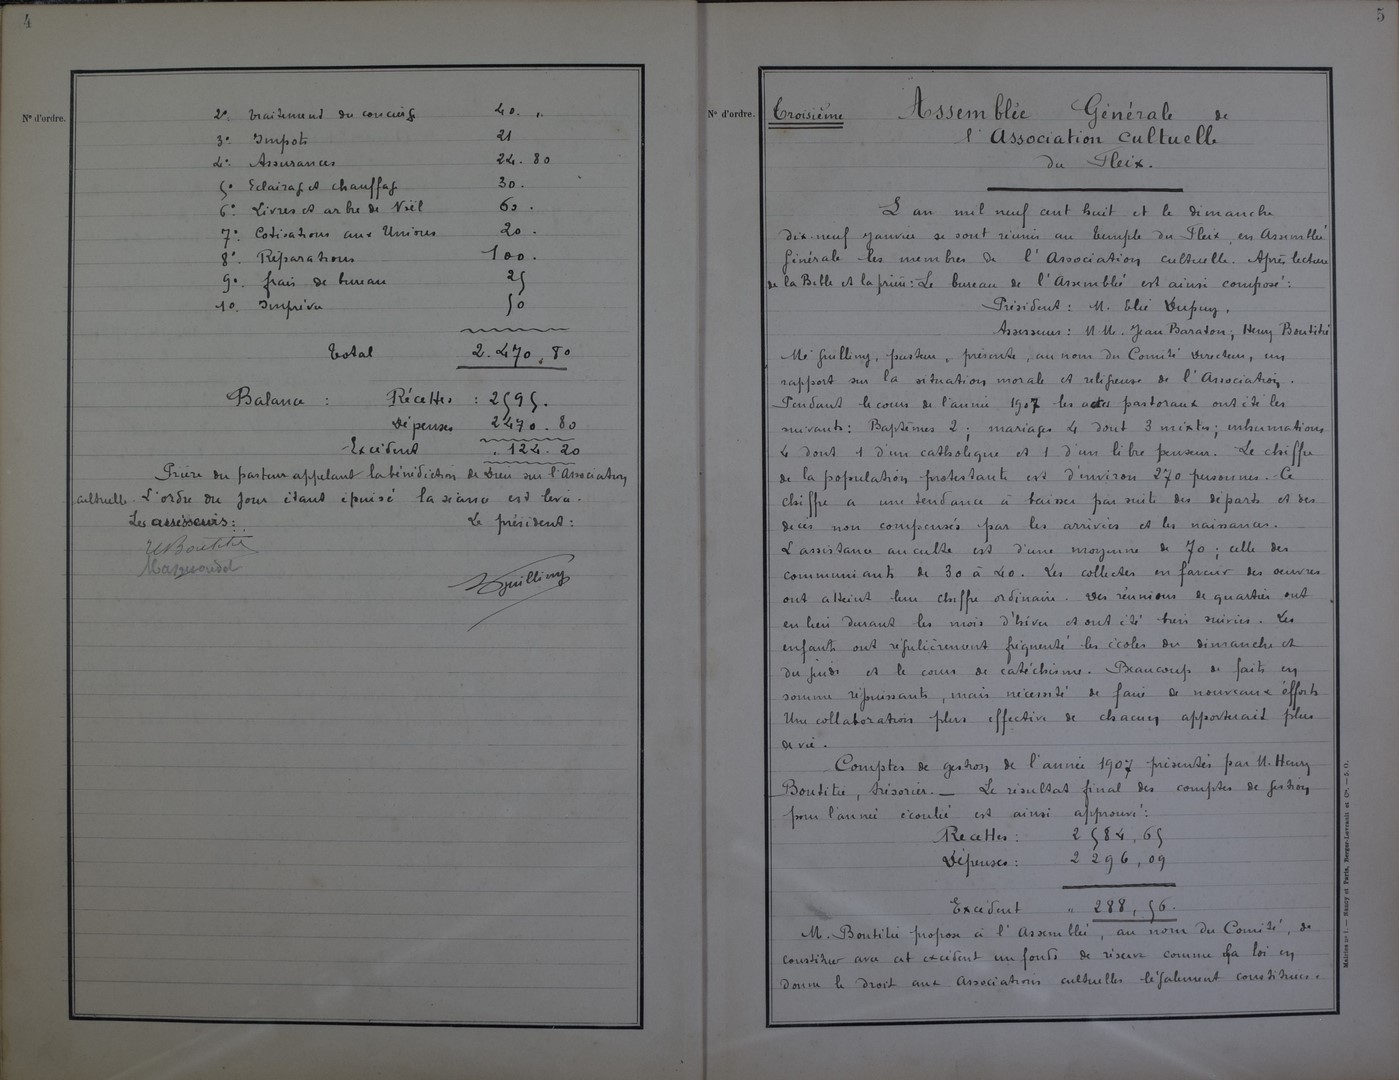 4
N° d'ordre.
2° traitement du concierge 40. "
3° Impots 21
4° Assurances 24. 80
5° Eclairage et chauffage 30.
6° Livres et arbre de Noël 60.
7° Cotisations aux Unions 20.
8° Réparations 100.
9° frais de bureau 25
10. Imprévu 50
Total 2.470.80
Balance : Récettes : 2595.
Dépenses 2470.80
Excédent .124.20
Prière du pasteur appelant la bénédiction de Dieu sur l'Association
cultuelle. L'ordre du jour étant épuisé la séance est levée.
Les assesseurs: Le président:
H Boutitié
Guilliny
5
N° d'ordre.
Troisième Assemblée Générale de
l'Association cultuelle
du Fleix.
L'an mil neuf cent huit et le dimanche
dix-neuf janvier se sont réunis au temple du Fleix en Assemblée
Générale les membres de l'Association cultuelle. Après lecture
de la Bible et la prière: Le bureau de l'Assemblée est ainsi composé:
Président: M. Elie Dupuy,
Assesseurs: M.M. Jean Baraton, Henry Boutitié
Mr Guilliny, pasteur, présente, au nom du Comité Directeur, un
rapport sur la situation morale et religieuse de l'Association.
Pendant le cours de l'année 1907 les actes pastoraux ont été les
suivants: Baptêmes 2; mariages 4 dont 3 mixtes; inhumations
4 dont 1 d'un catholique et 1 d'un libre penseur. Le chiffre
de la population protestante est d'environ 270 personnes. Ce
chiffre a une tendance à baisser par suite des départs et des
décès non compensés par les arrivées et les naissances.
L'assistance au culte est d'une moyenne de 70; celle des
communiants de 30 à 40. Les collectes en faveur des oeuvres
ont atteint leur chiffre ordinaire. Des réunions de quartier ont
eu lieu durant les mois d'hiver et ont été bien suivies. Les
enfants ont régulièrement fréquenté les écoles du dimanche et
du jeudi et le cours de catéchisme. Beaucoup de faits en
somme réjouissants, mais nécessité de faire de nouveaux efforts
Une collaboration plus effective de chacun apporterait plus
de vie.
Comptes de gestion de l'année 1907 présentés par M. Henry
Boutitié, trésorier. — Le résultat final des comptes de gestion
pour l'année écoulée est ainsi approuvé:
Recettes: 2584,65
Dépenses: 2296,09
Excédent " 288,56.
M. Boutitié propose à l'Assemblée, au nom du Comité, de
constituer avec cet excédent un fonds de réserve comme la loi en
donne le droit aux Associations cultuelles légalement constituées.
Matrice n° 1. — Nancy et Paris, Berger-Levrault et Cie. — J. O.